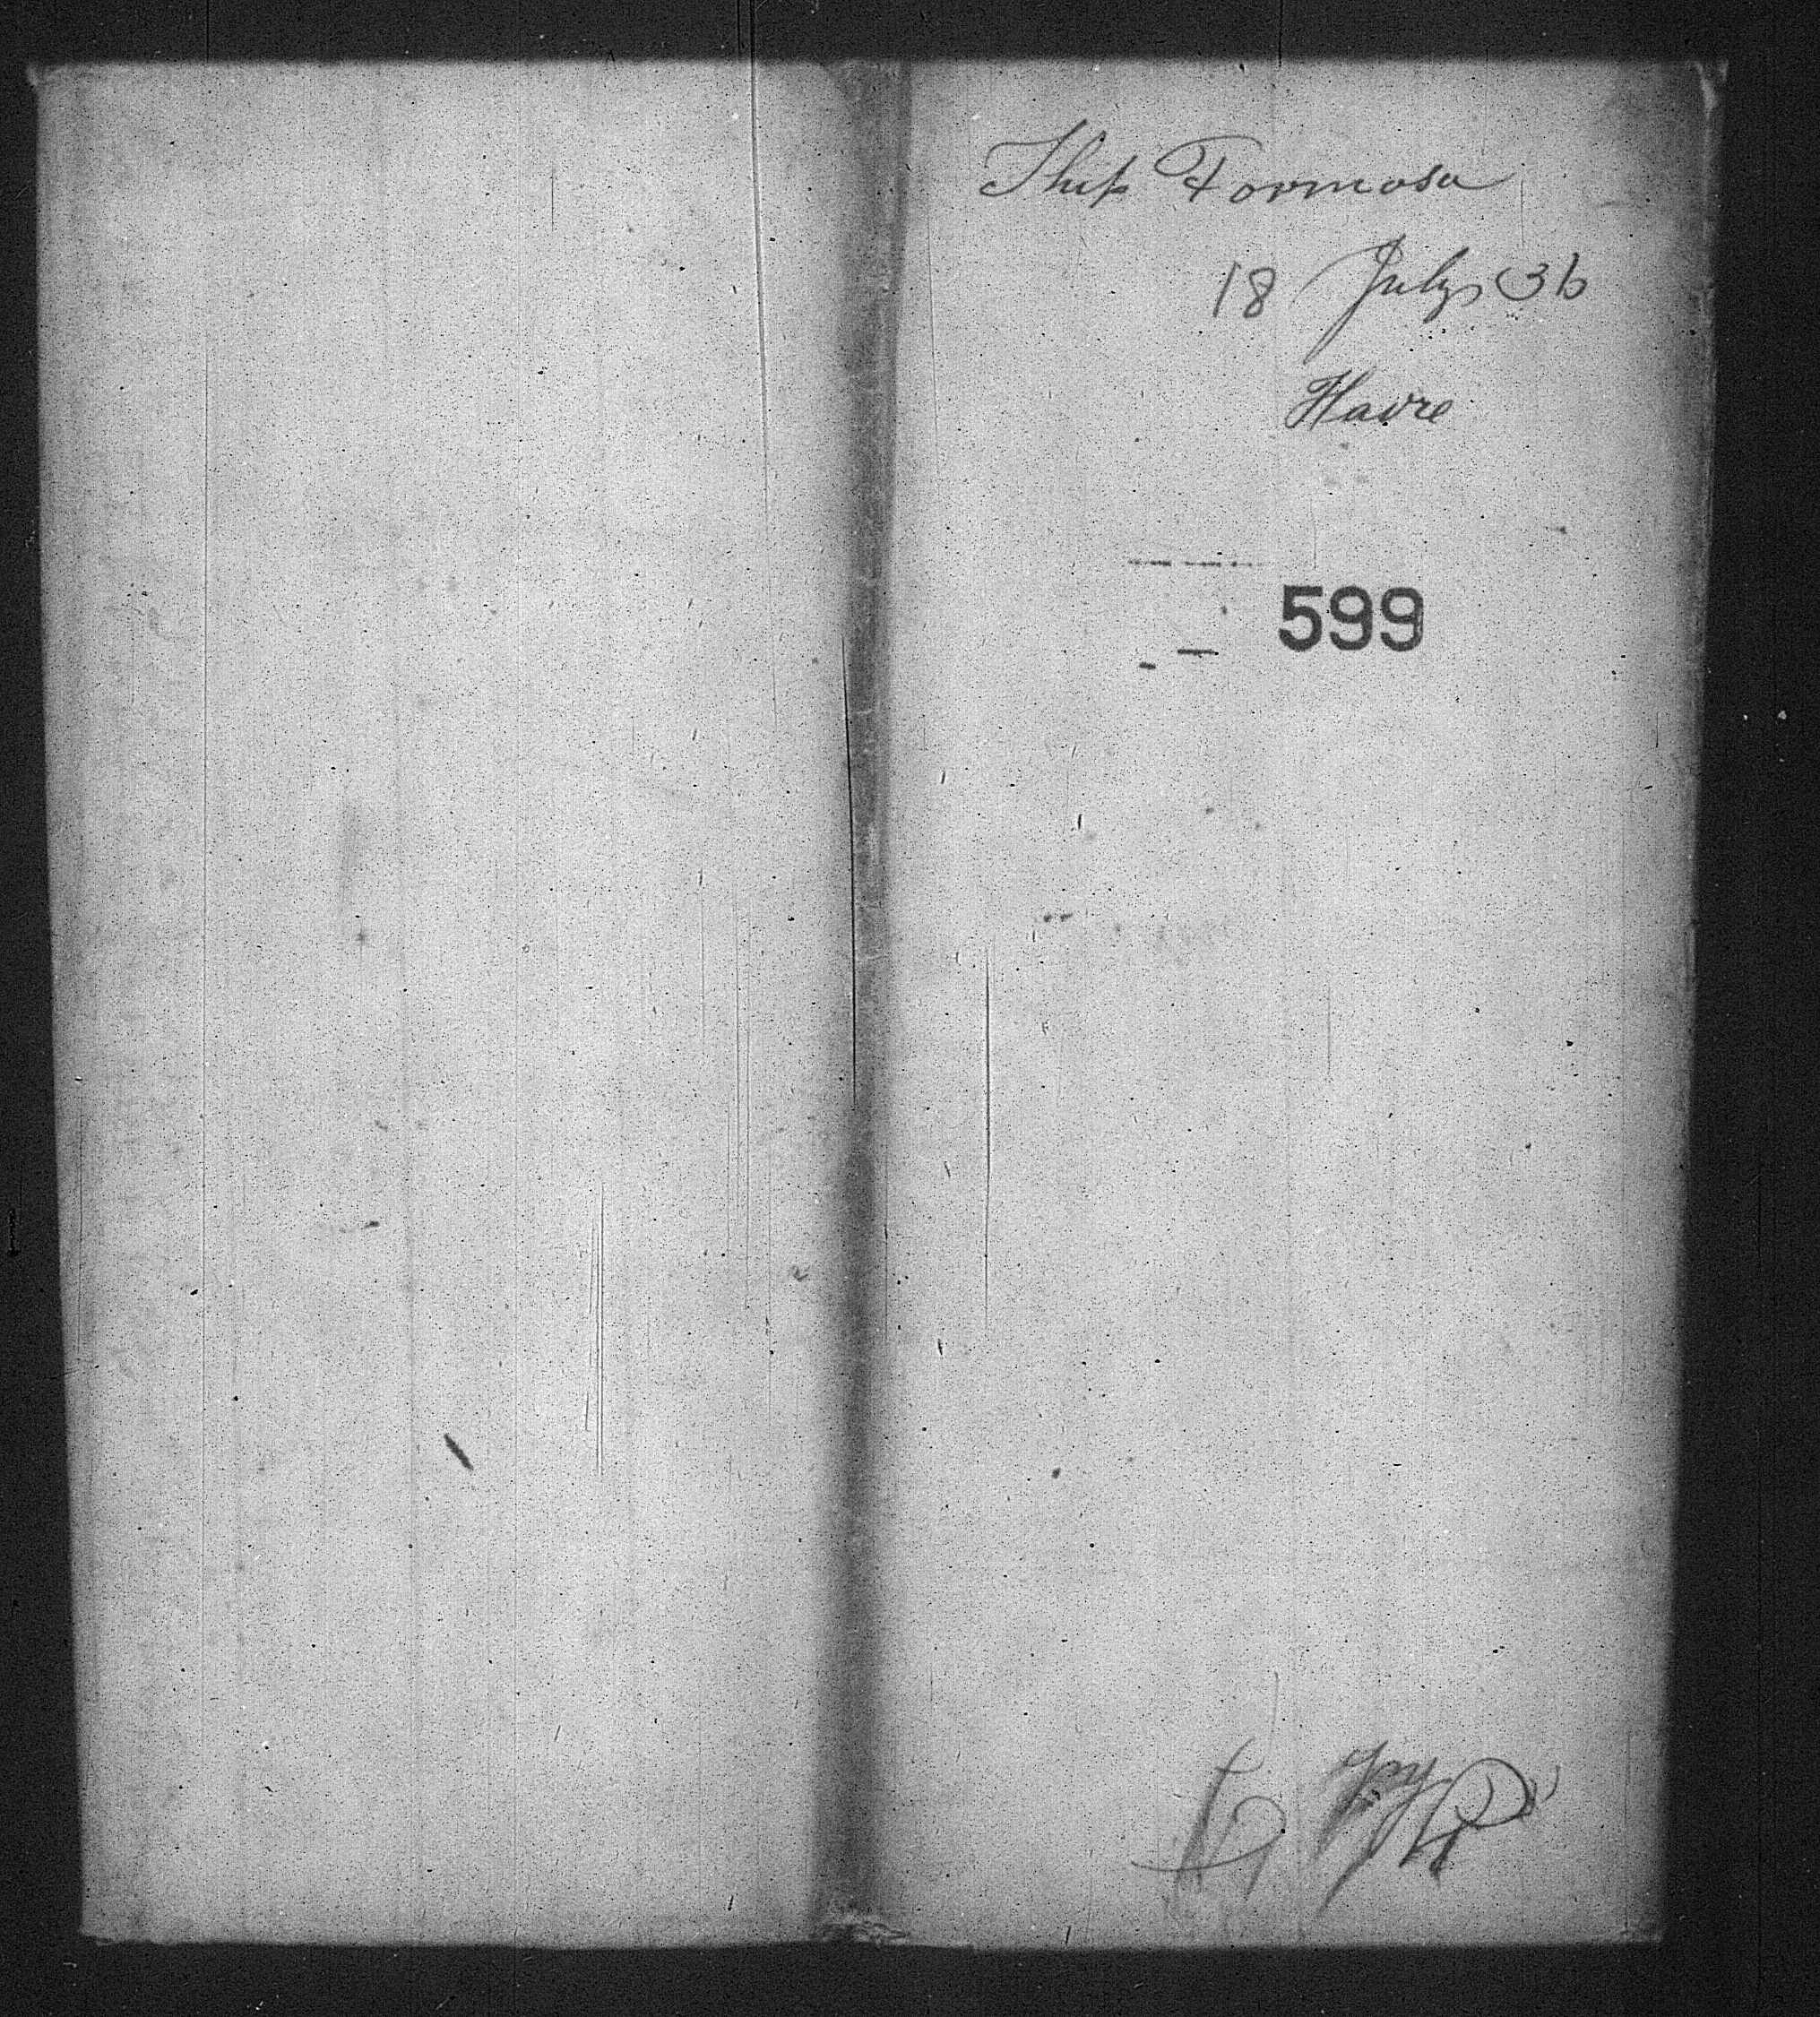 Ship Formosa
18 July 36
Havre
599